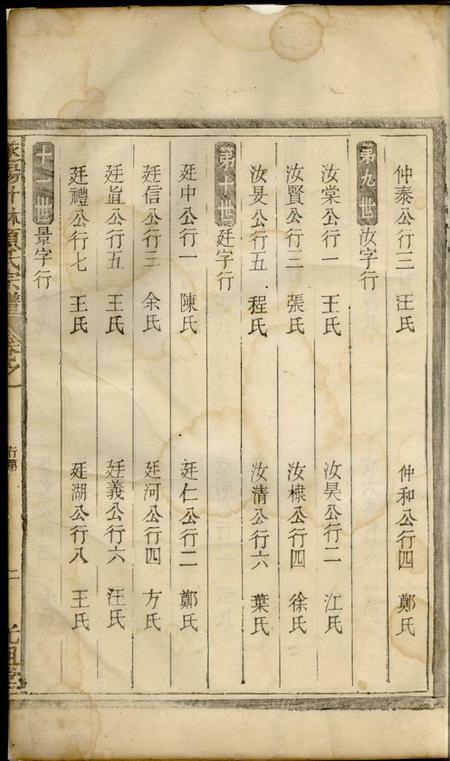 仲泰公行三 汪氏 仲和公行四 鄭氏
第九世 汝字行
汝棠公行一 王氏 汝昊公行二 江氏
汝賢公行三 張氏 汝棣公行四 徐氏
汝旻公行五 程氏 汝清公行六 葉氏
第十世 廷字行
廷中公行一 陳氏 廷仁公行二 鄭氏
廷信公行三 余氏 廷河公行四 方氏
廷旹公行五 王氏 廷義公行六 汪氏
廷禮公行七 王氏 廷湖公行八 王氏
十一世 景字行
氏宗譜